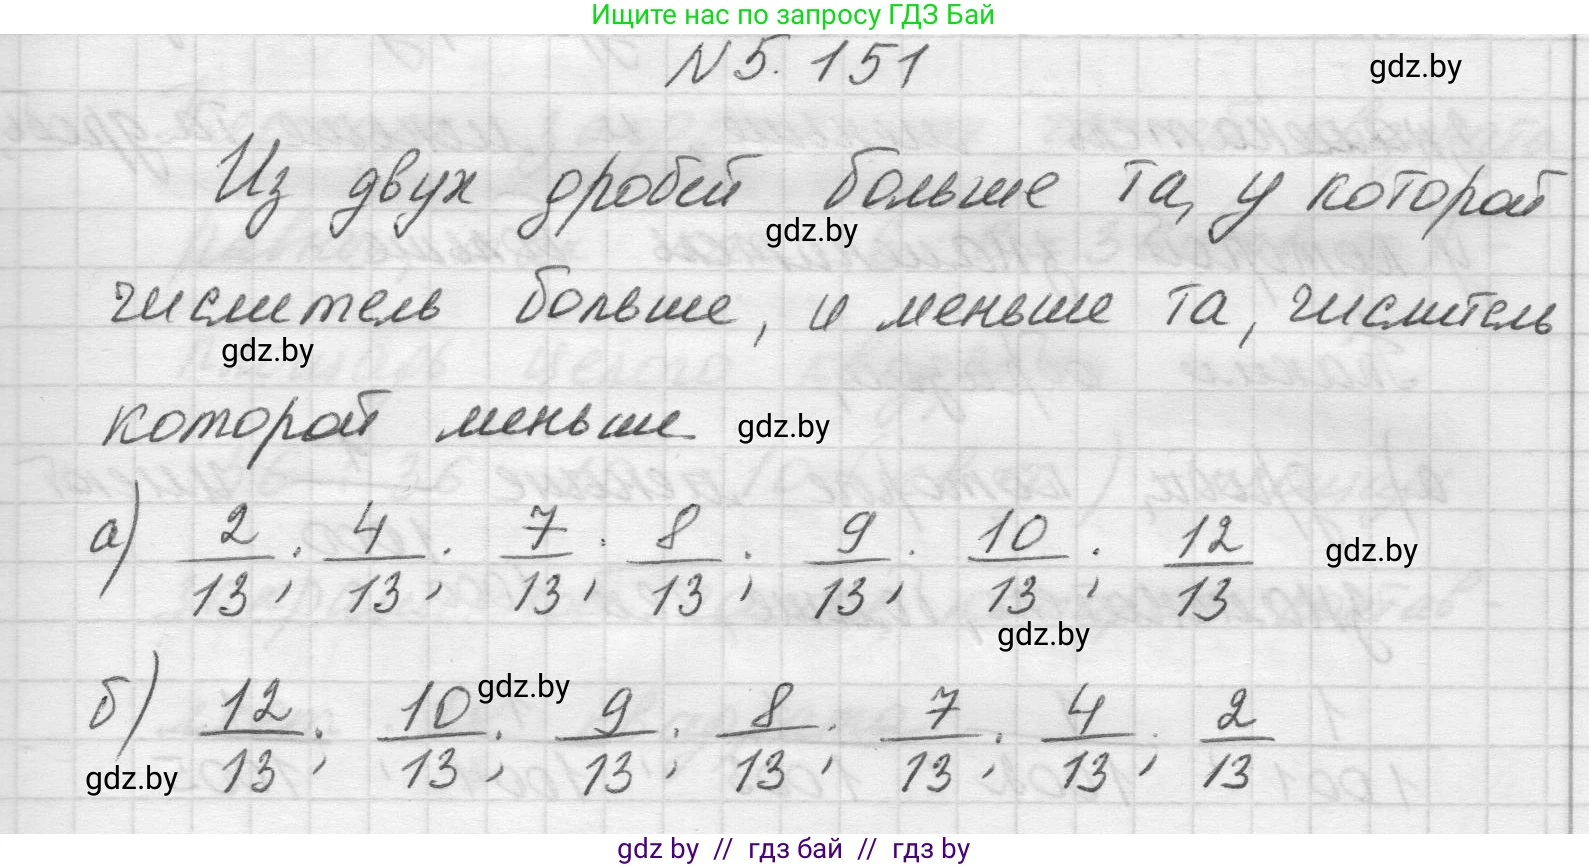 Ищите нас по запросу ГДЗ Бай
N 5. 151
gdz.by
Из двух дробей больше та, у которой
gdz.by
числитель больше, и меньше та, числитель
gdz.by
которой меньше
gdz.by
а) 2/13; 4/13; 7/13; 8/13; 9/13; 10/13; 12/13
gdz.by
gdz.by
б) 12/13; 10/13; 9/13; 8/13; 7/13; 4/13; 2/13
gdz.by
gdz.by
gdz by // гдз бай // гдз by